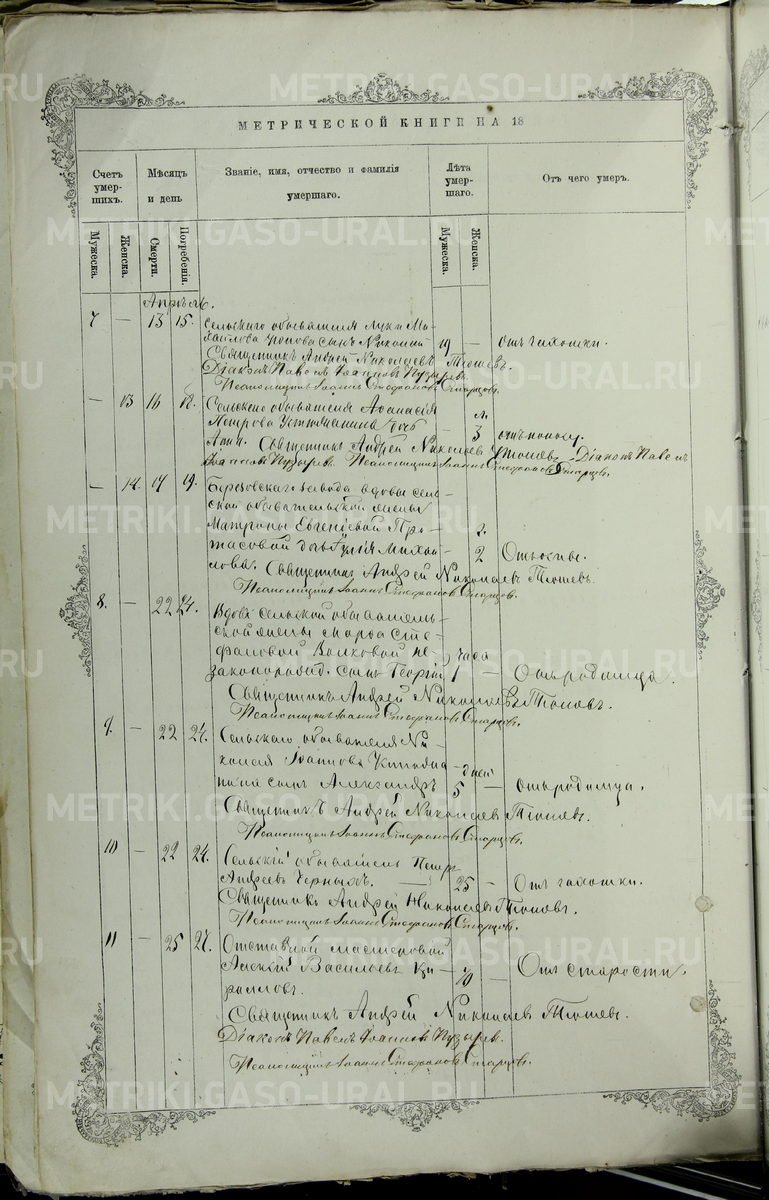 МЕТРИЧЕСКОЙ КНИГИ НА 18
Счетъ умер- шихъ.
Мѣсяцъ и день
Званіе, имя, отчество и фамилія умершаго.
Лѣта умер- шаго.
Отъ чего умеръ.
Мужеска.
Женска.
Смерти.
Погребенія.
Мужеска.
Женска.
Апрѣль.
7 — 13 15. Сельскаго обывателя Луки Ми-
хаилова сынъ Николай 19 — Отъ чахотки.
Священникъ Андрей Николаевъ Тюшевъ.
Діаконъ Павелъ Іоанновъ Пузыревъ.
Псаломщикъ Іоаннъ Стефановъ Старцовъ.
— 13 16 18. Сельскаго обывателя Аѳанасія м.
Петрова Устюжанина дочь — 3 отъ поносу.
Анна. Священникъ Андрей Николаевъ Тюшевъ. Діаконъ Павелъ
Іоанновъ Пузыревъ. Псаломщикъ Іоаннъ Стефановъ Старцовъ.
— 14. 17 19. Березовскаго завода вдовы сель-
ской обывательской жены
Матроны Евгеніевой Про-
тасовой дочь Михаи- 2
лова. Священникъ Андрей Николаевъ Тюшевъ.
Псаломщикъ Іоаннъ Стефановъ Старцовъ.
8. — 22 24. Вдовы сельской обыватель-
ской жены Марѳы Сте-
фановой Волковой не часа
законорожд. сынъ Георгій 1 — Отъ родимца.
Священникъ Андрей Николаевъ Тюшевъ.
Псаломщикъ Іоаннъ Стефановъ Старцовъ.
9. — 22 24. Сельскаго обывателя Ни-
колая Іоаннова Устюжа- дней
нина сынъ Александръ 5 — отъ родимца.
Священникъ Андрей Николаевъ Тюшевъ.
Псаломщикъ Іоаннъ Стефановъ Старцовъ.
10 — 22 24. Сельскій обыватель Петръ
Андреевъ Черныхъ. — 25 — Отъ чахотки.
Священникъ Андрей Николаевъ Тюшевъ.
Псаломщикъ Іоаннъ Стефановъ Старцовъ.
11 — 25 27. Отставной мастеровой
Алексій Васильевъ 70 — Отъ старости.
Священникъ Андрей Николаевъ Тюшевъ.
Діаконъ Павелъ Іоанновъ Пузыревъ.
Псаломщикъ Іоаннъ Стефановъ Старцовъ.
METRIKI.GASO-URAL.RU